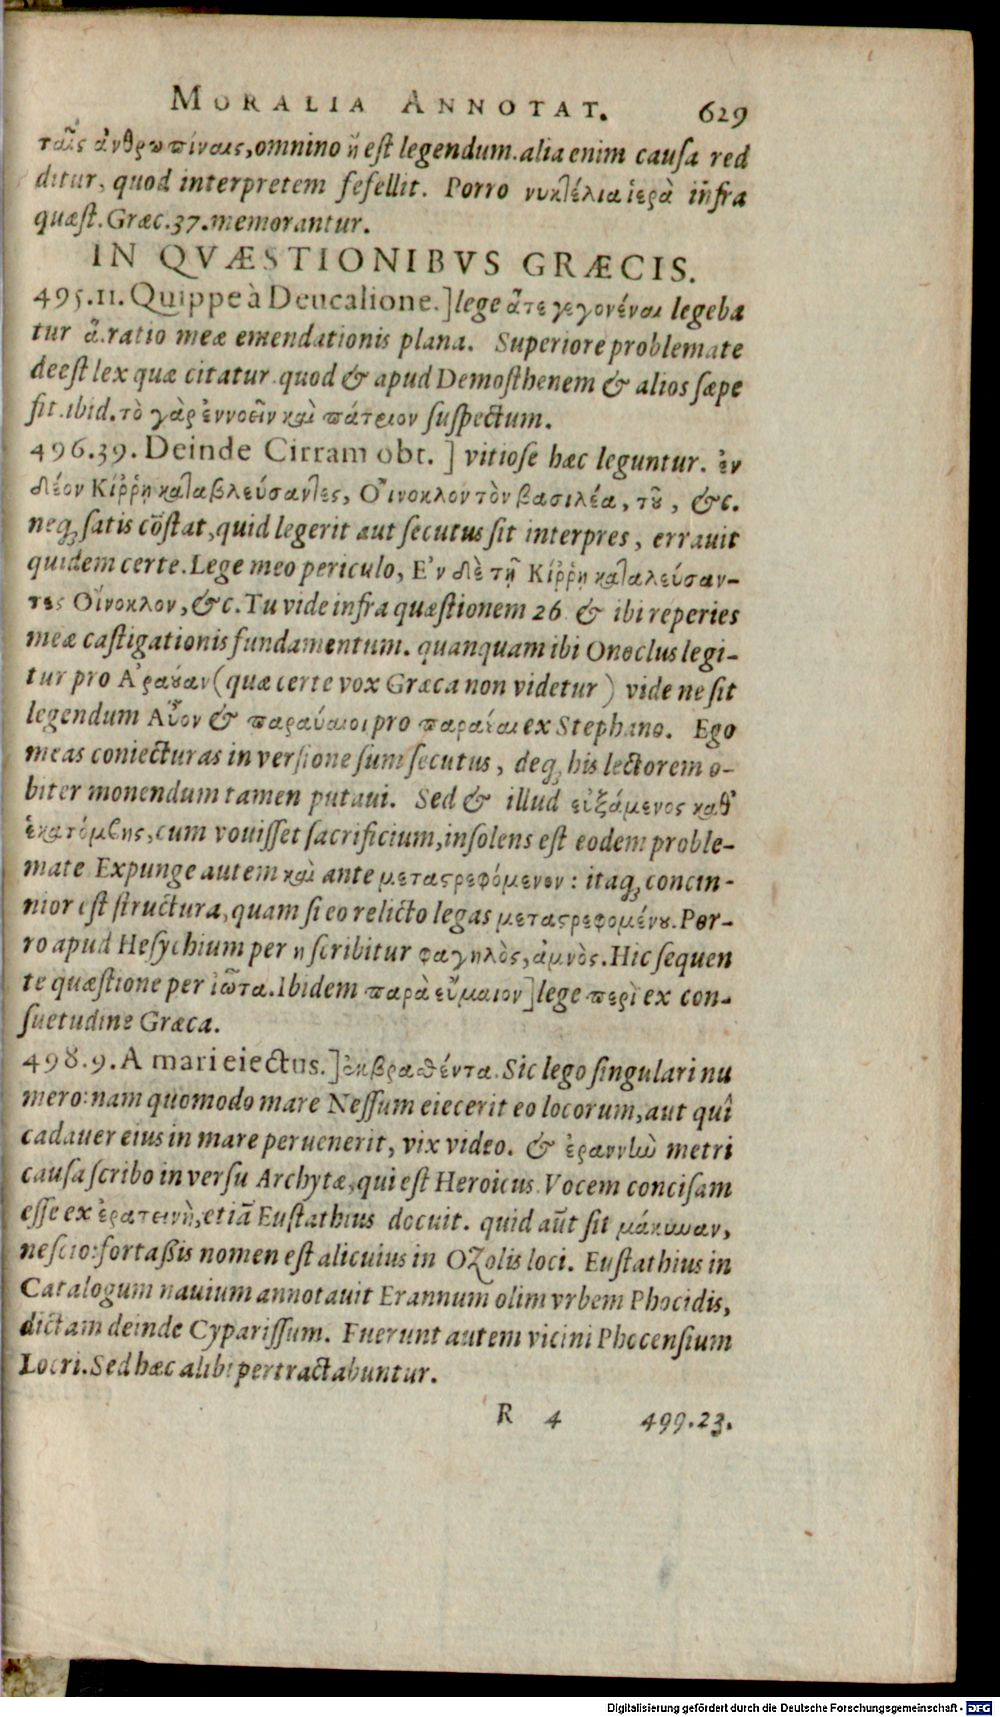 MORALIA ANNOTAT. 629
ταῖς ἀνθρωπίναις, omnino ἢ est legendum. alia enim causa red
ditur, quod interpretem fefellit. Porro νυκτέλια ἱερὰ infra
quæst. Græc. 37. memorantur.
IN QVÆSTIONIBVS GRÆCIS.
495.11. Quippe à Deucalione.] lege ἅτε γεγονέναι legeba
tur ἅ. ratio meæ emendationis plana. Superiore problemate
deest lex quæ citatur. quod & apud Demosthenem & alios sæpe
fit. ibid. τὸ γὰρ ἐννοεῖν καὶ πάτριον suspectum.
496.39. Deinde Cirram obt.] vitiose hæc leguntur. ἐν
δέον Κίῤῥῃ καταβλεύσαντες, Οἴνοκλον τὸν βασιλέα, τοῦ, &c.
neq; satis cōstat, quid legerit aut secutus sit interpres, errauit
quidem certe. Lege meo periculo, Ἐν δὲ τῇ Κίῤῥῃ καταλεύσαν-
τες Οἴνοκλον, &c. Tu vide infra quæstionem 26 & ibi reperies
meæ castigationis fundamentum. quanquam ibi Onoclus legi-
tur pro Ἀραούαν (quæ certe vox Græca non videtur) vide ne sit
legendum Αὖον & παραύαιοι pro παραίαι ex Stephano. Ego
meas coniecturas in versione sum secutus, deq; his lectorem o-
biter monendum tamen putaui. Sed & illud εὐξάμενος καθ'
ἑκατόμβης, cum vouisset sacrificium, insolens est eodem proble-
mate Expunge autem καὶ ante μεταστρεφόμενον: itaq; concin-
nior est structura, quam si eo relicto legas μεταστρεφομένου. Por-
ro apud Hesychium per η scribitur φαγηλὸς, ἀμνὸς. Hic sequen
te quæstione per ἰῶτα. Ibidem παρὰ εὔμαιον] lege περὶ ex con-
suetudine Græca.
498.9. A mari eiectus.] ἐκβρασθέντα. Sic lego singulari nu
mero: nam quomodo mare Nessum eiecerit eo locorum, aut quî
cadauer eius in mare peruenerit, vix video. & ἐραννὼ metri
causa scribo in versu Archytæ, qui est Heroicus. Vocem concisam
esse ex ἐρατεινὴ, etiā Eustathius docuit. quid aūt sit μάκυναν,
nescio: fortaßis nomen est alicuius in OZolis loci. Eustathius in
Catalogum nauium annotauit Erannum olim vrbem Phocidis,
dictam deinde Cyparissum. Fuerunt autem vicini Phocensium
Locri. Sed hæc alibi pertractabuntur.
R 4 499.23.
Digitalisierung gefördert durch die Deutsche Forschungsgemeinschaft - DFG